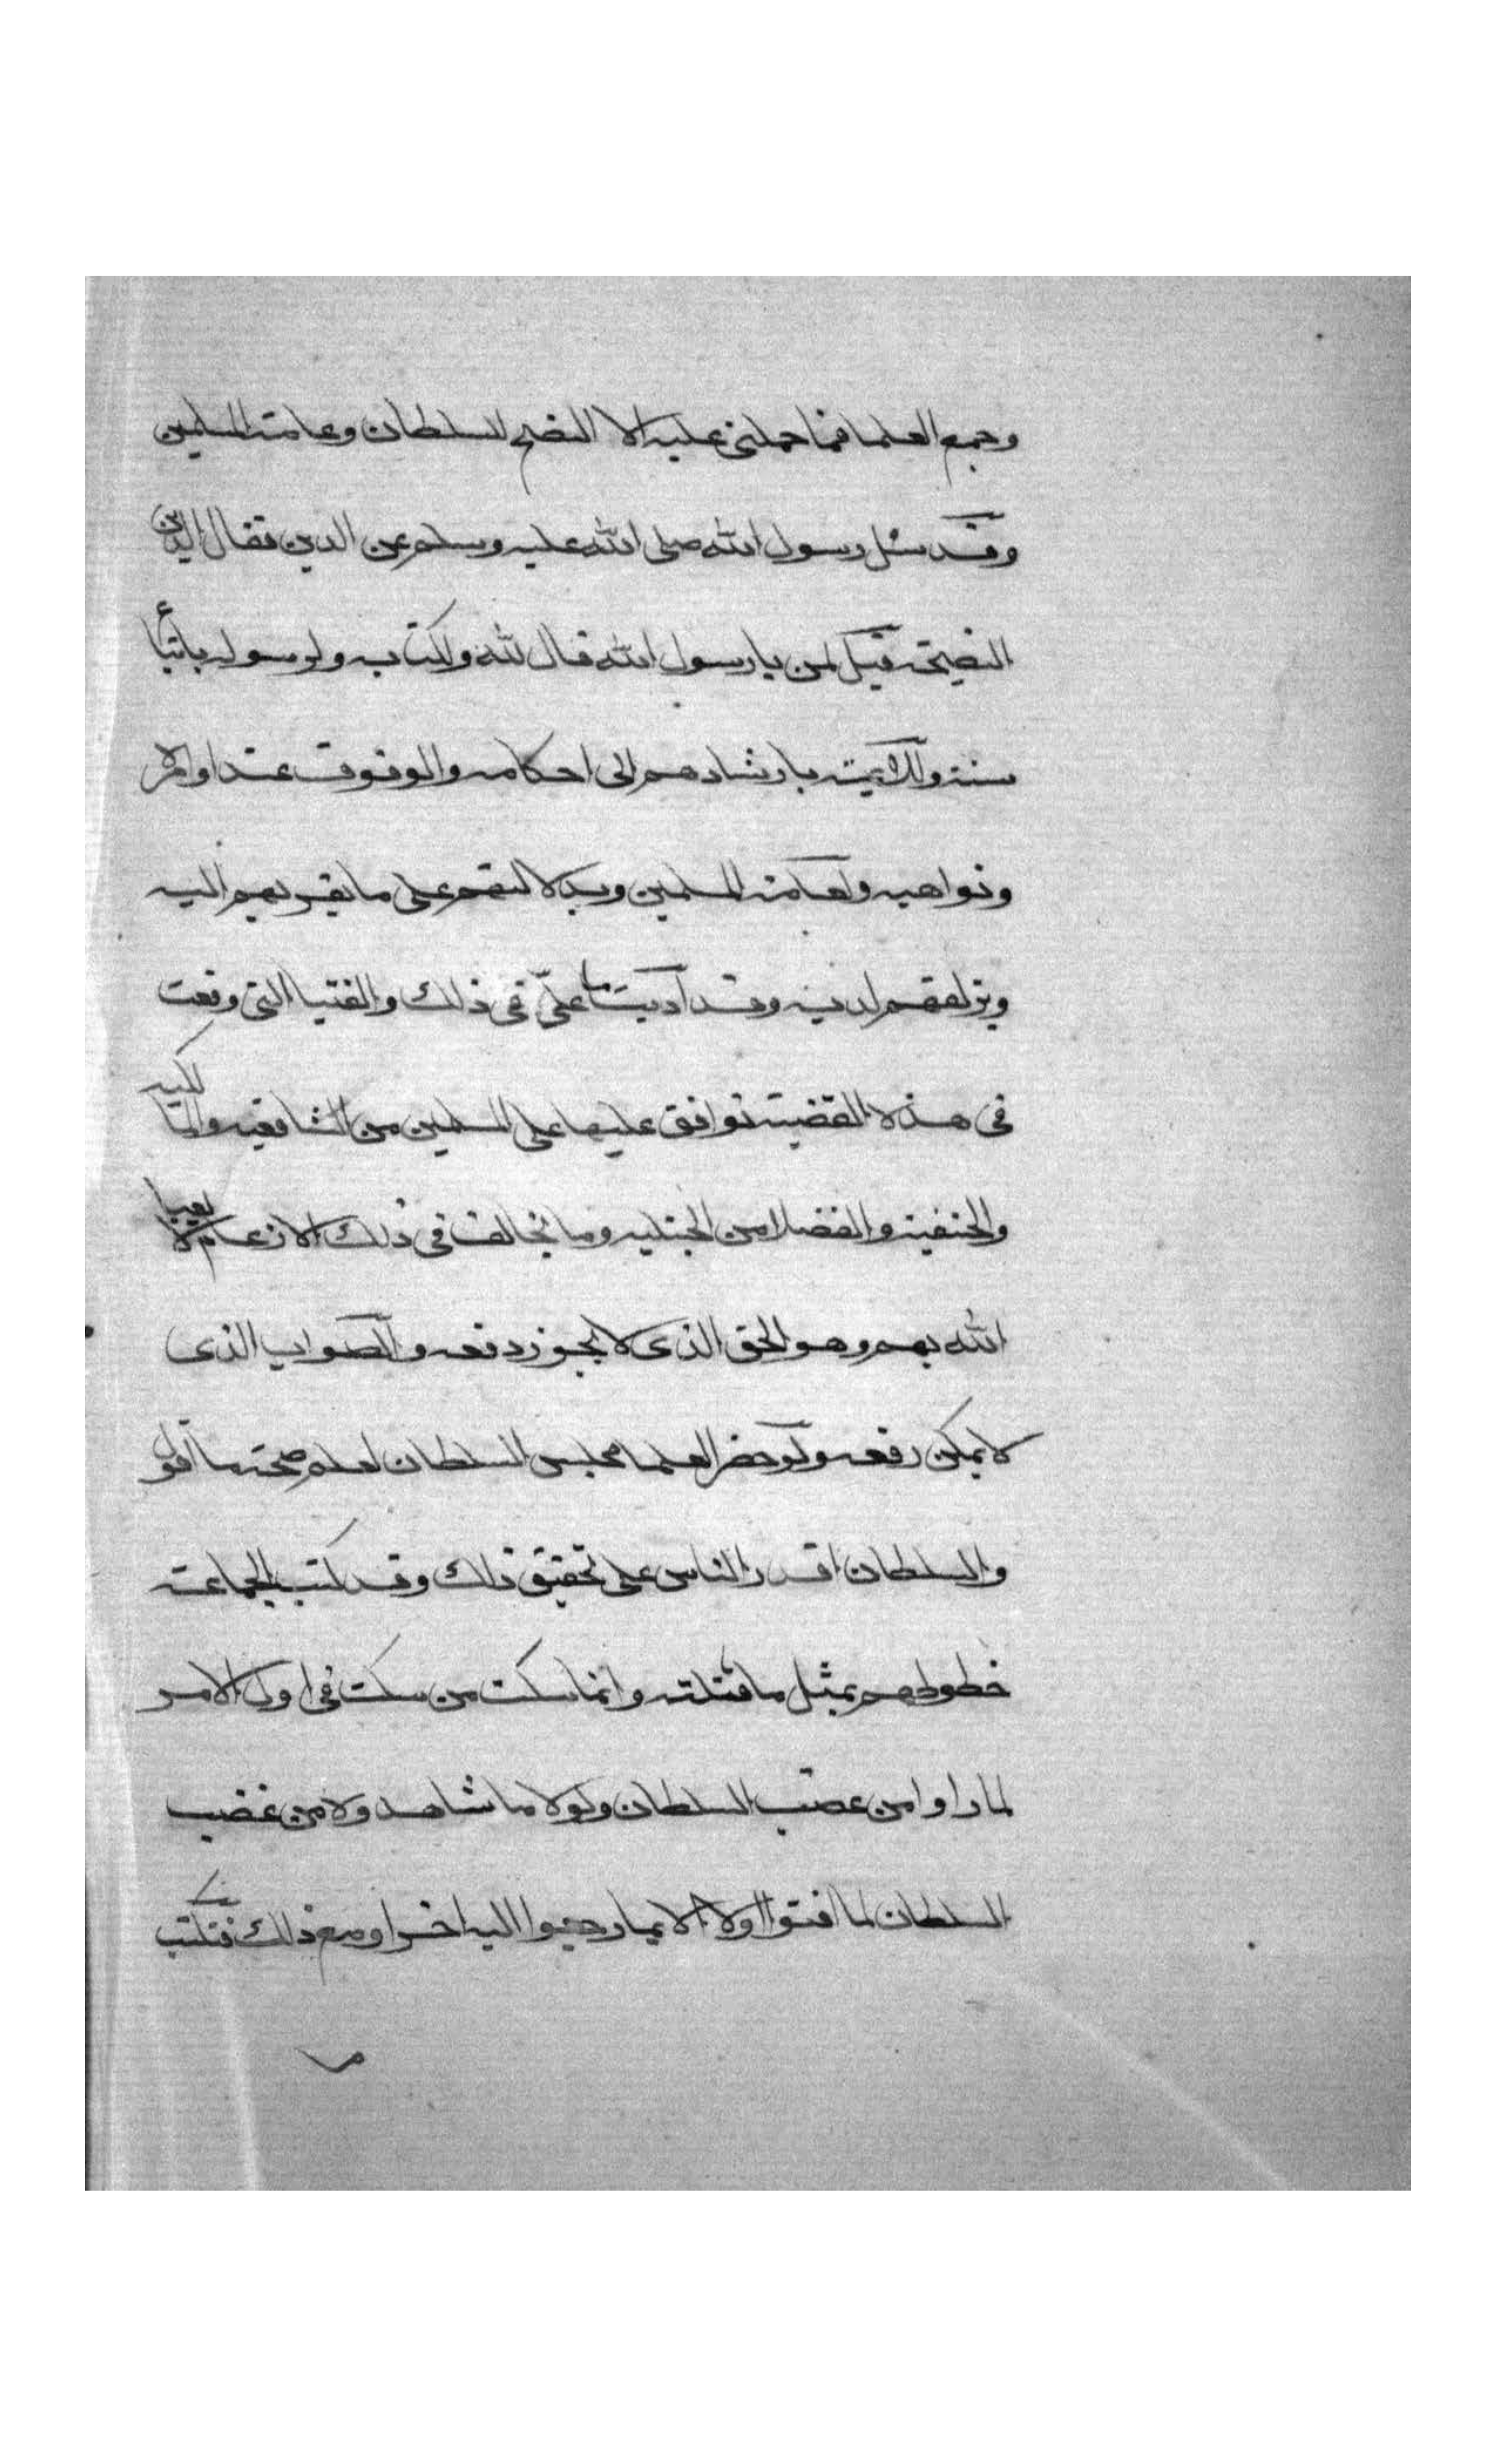 وجمع العلما فما حملنى عليه الا النصح للسلطان وعامة المسلمين
وقد سئل رسول الله صلى الله عليه وسلم عن الدين فقال الدين
النصيحة فقيل لمن يا رسول الله قال لله ولكتابه ولرسوله باتباع
سنته وللائمة بارشادهم الى احكامه والوقوف عند اوامره
ونواهيه ولعامة المسلمين وبدلالتهم على ما يقربهم اليه
ويزلفهم لديه وقد اديت ما علىّ فى ذلك والفتيا التى وقعت
فى هذه القضية توافق عليها على المسلمين من الشافعيه والمالكيه
والحنفية والفضلا من الحنبليه وما يخالف فى ذلك الا زعام لا يعبا
الله بهم وهو الحق الذى لا يجوز دفعه والصواب الذى
لا يمكن رفعه ولو حضر العلما مجلس السلطان لعلم صحة ما اقول
والسلطان اقدر الناس على تحقيق ذلك وقد كتب الجماعة
خطوطهم بمثل ما قتلته وانما سكت من سكت فى اول الامر
لما راوا من غضب السلطان ولولا ما شاهدوه من غضب
السلطان لما افتوا اولا الا بما رجعوا اليه اخرا ومع ذلك فتكتب